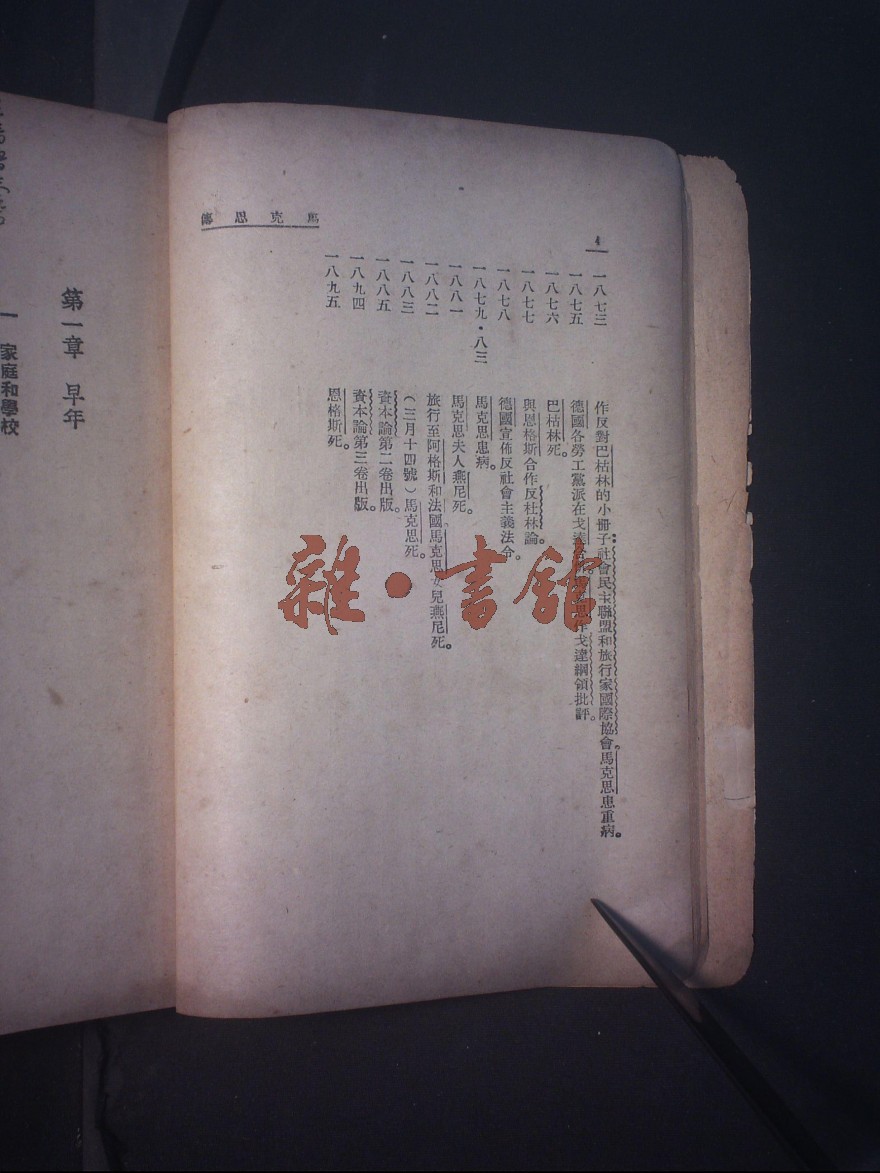 馬克思傳
4
一八七三 作反對巴枯林的小冊子：社會民主聯盟和旅行家國際協會。馬克思患重病。
一八七五 德國各勞工黨派在戈達合併。馬克思作戈達綱領批評。
一八七六 巴枯林死。
一八七七 與恩格斯合作反杜林論。
一八七八 德國宣佈反社會主義法令。
一八七九・八三 馬克思患病。
一八八一 馬克思夫人燕尼死。
一八八二 旅行至阿格斯和法國馬克思女兒燕尼死。
一八八三 （三月十四號）馬克思死。
一八八五 資本論第二卷出版。
一八九四 資本論第三卷出版。
一八九五 恩格斯死。
第一章 早年
一 家庭和學校
雜・書館